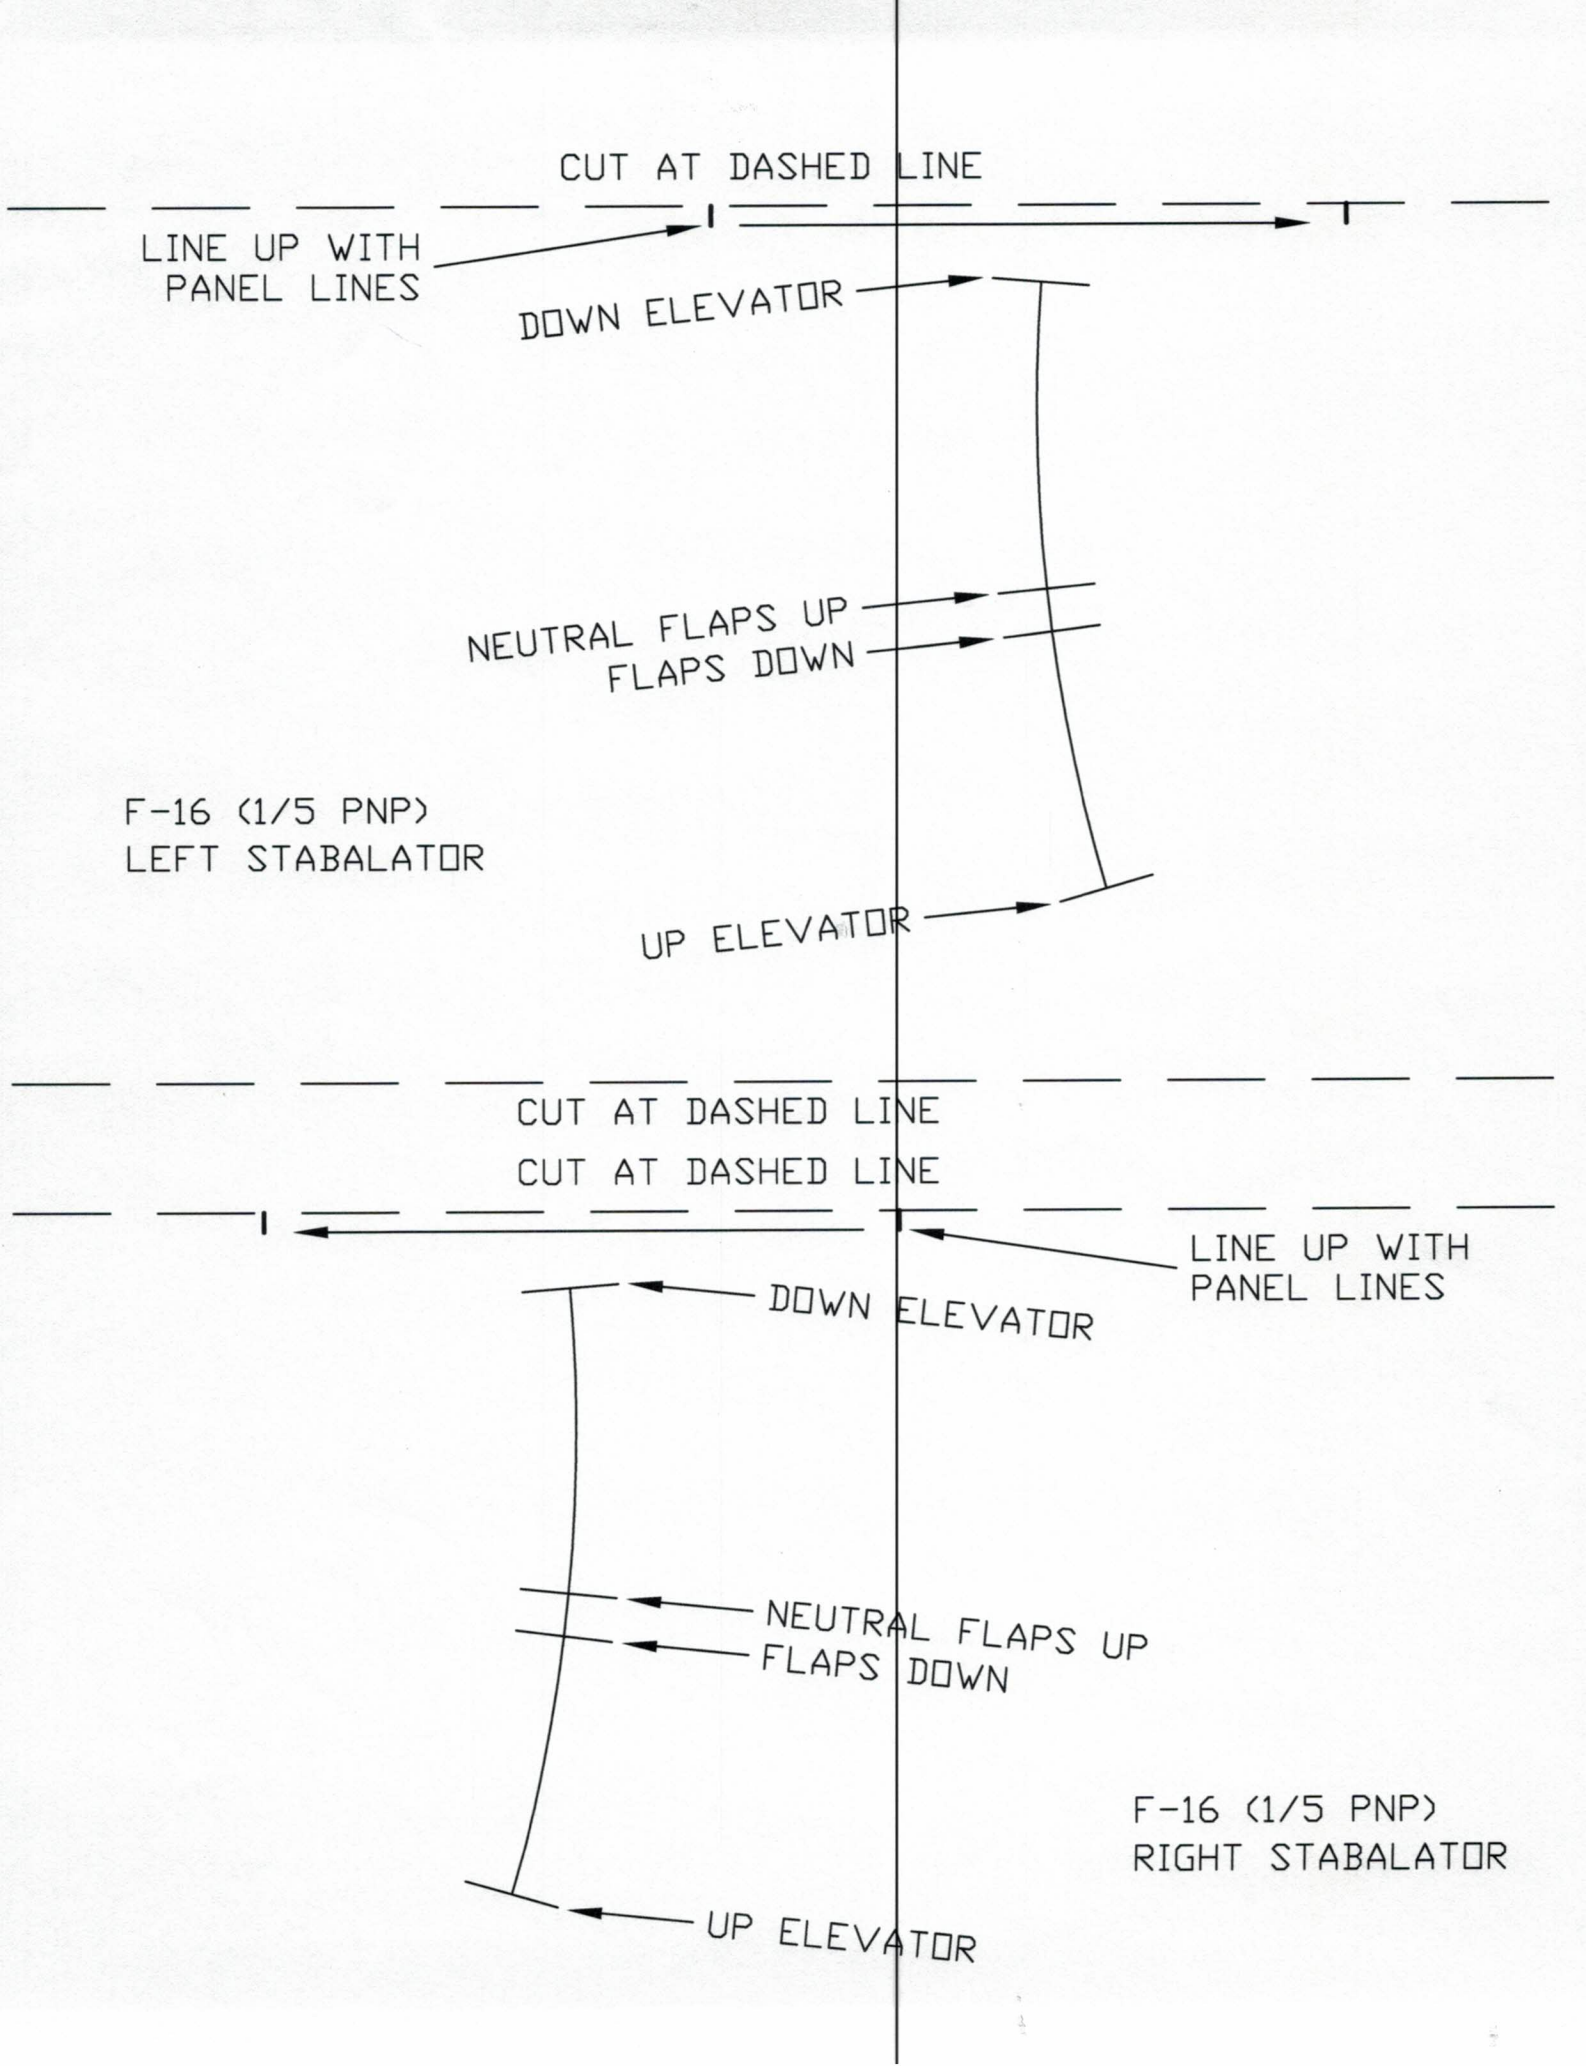 CUT AT DASHED LINE
LINE UP WITH
PANEL LINES
DOWN ELEVATOR
NEUTRAL FLAPS UP
FLAPS DOWN
F-16 (1/5 PNP)
LEFT STABALATOR
UP ELEVATOR
CUT AT DASHED LINE
CUT AT DASHED LINE
LINE UP WITH
PANEL LINES
DOWN ELEVATOR
NEUTRAL FLAPS UP
FLAPS DOWN
F-16 (1/5 PNP)
RIGHT STABALATOR
UP ELEVATOR